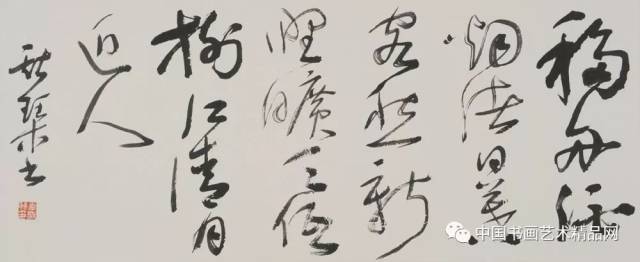 移舟泊
烟渚日暮
客愁新
野曠天低
樹江清月
近人
书
中国书画艺术精品网